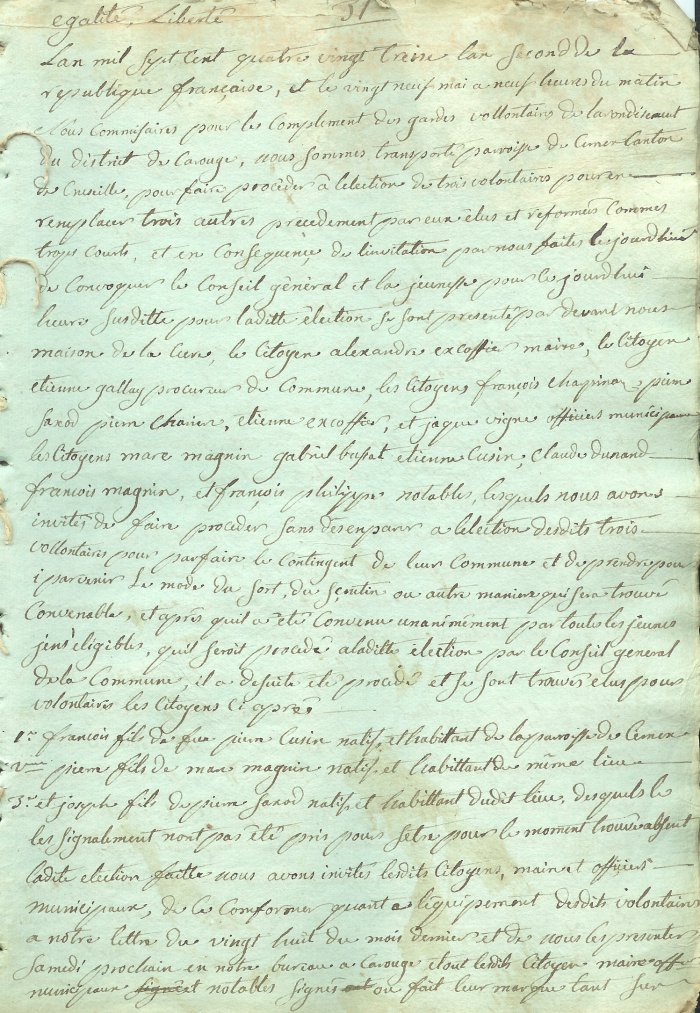 egalité, Liberté
31
Lan mil sept Cent quatre vingt treise lan second de la
republique françaïse, et le vingt neuf mai a neuf heures du matin
Nous Commisaires pour le Complement des gardes vollontaires de larondisement
du district de Carouge, nous sommes transporté parroisse de Cernex Canton
de Cruseille, pour faire procèder à lelection de trois volontaires pour en
remplacer trois autres precedement par eux êlus et reformés Commes
trops Courts, et en Consequence de linvitation par nous faites les jourdhier
de Convoquer le Conseil gênèral et la jeunesse pour ce jourdhui
heure susditte pour laditte êlection se sont presentés par devant nous
maison de la Cure, le Citoyen alexandre excoffier maire, le Citoyen
etienne gallay procureur de Commune, les Citoyens françois Chapina pierre
saxod pierre Charier, etienne excoffier, et jaque vigne officiers municipaux
les Citoyens marc magnin gabriel bussat etienne Cusin, Claude dunand
francois magnin, et françois philippe notables, lesquels nous avons
invités de faire procèder sans desenparer a lelection desdits trois
vollontaires pour parfaire le Contingent de leur Commune et de prendre pour
i parvenir le mode du sort, du scrutin ou autre maniere qui sera trouvé
Convenable, et après quil a êtê Convenu unanimèment par toute les jeunes
jens êligibles, quil seroit procèdê a laditte êlection par le Conseil general
de la Commune, il a desuite êtê procèdê et se sont trouvés elus pour
volontaires les Citoyens Ci aprês
1er. françois fils de feu pierre Cusin natif, et habittant de la parroisse de Cernex
2eme pierre fils de marc magnin natif et habittant de même lieu
3e et joseph fils de pierre saxod natif, et habittant dudit lieu, desquels le
les signalement nont pas êtê pris pour sêtre pour le moment trouvé absent
ladite election faitte nous avons invités lesdits Citoyens, maire et officiers
municipaux, de ce Comformer quant a lêquipement desdits volontaires
a notre lettre du vingt huit du mois dernier et de nous les presenter
samedi prochain en notre bureau a Carouge et ont lesdits Citoyen maire officier
municipaux signés et notables signés ou fait leur marque tant sur